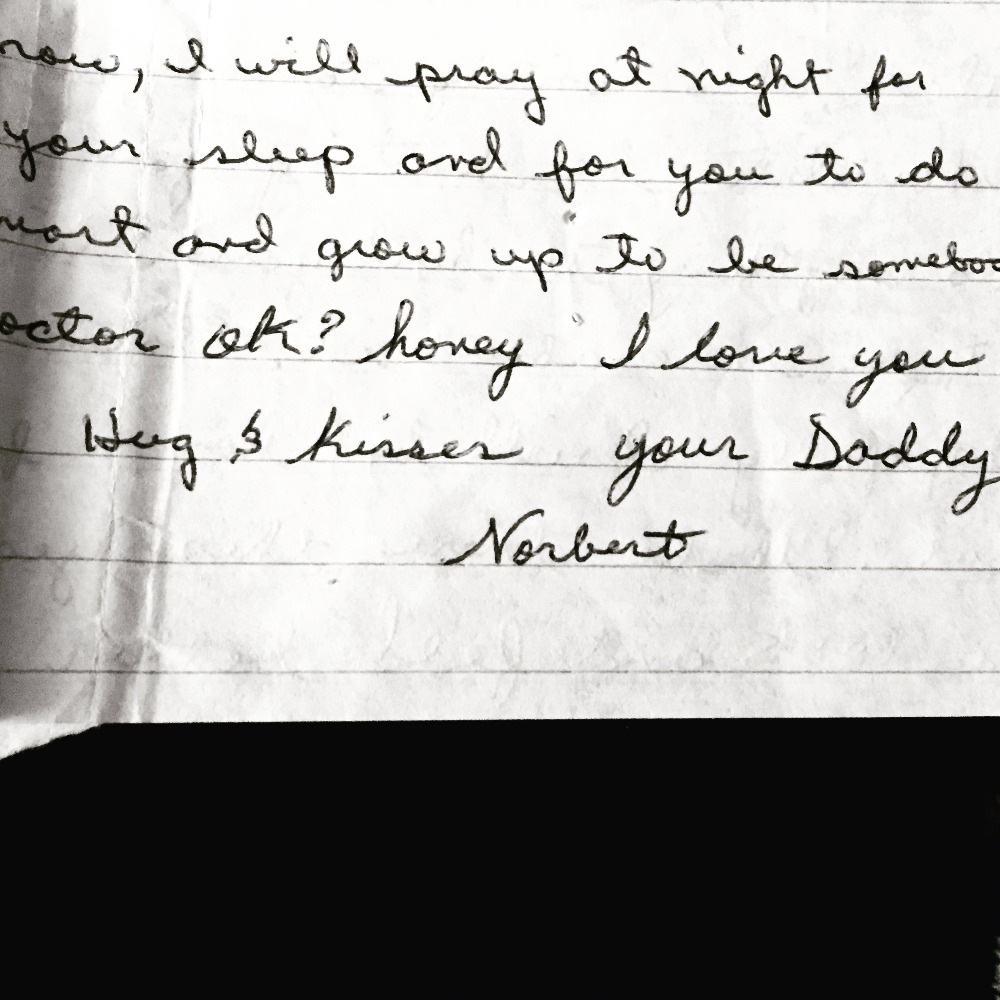 now, I will pray at night for
your sleep and for you to do
and grow up to be
ok? honey I love you
Hug & Kisses your Daddy
Norbert